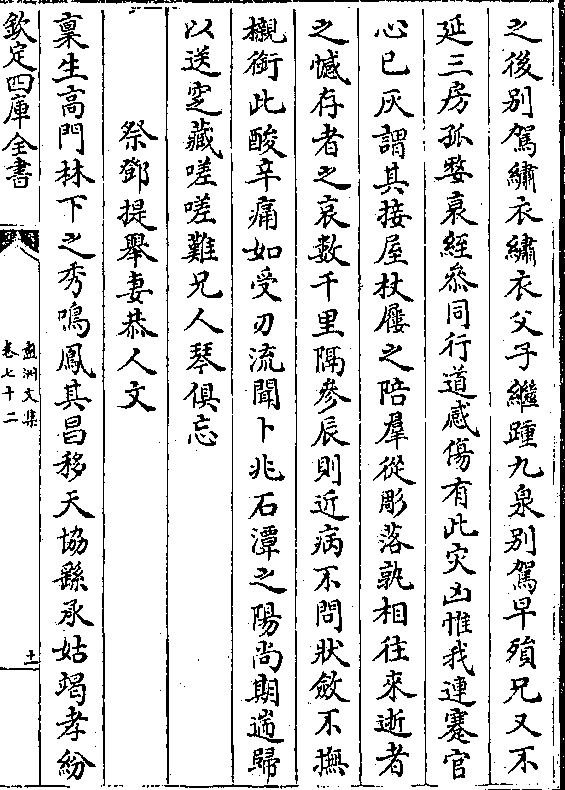 之後别駕繡衣繡衣父子繼踵九泉别駕早殞兄又不
延三房孤嫠衰絰叅同行道感傷有此灾凶惟我連蹇官
心已灰謂其接屋杖屨之陪羣從彫落孰相往來逝者
之憾存者之哀數千里隔參辰則近病不問狀斂不撫
櫬銜此酸辛痛如受刃流聞卜兆石潭之陽尚期遄歸
以送窆藏嗟嗟難兄人琴俱忘
祭鄧提舉妻恭人文
禀生高門林下之秀鳴鳳其昌移天協繇承姑竭孝紛
欽定四庫全書
盤洲文集
卷七十二
十一